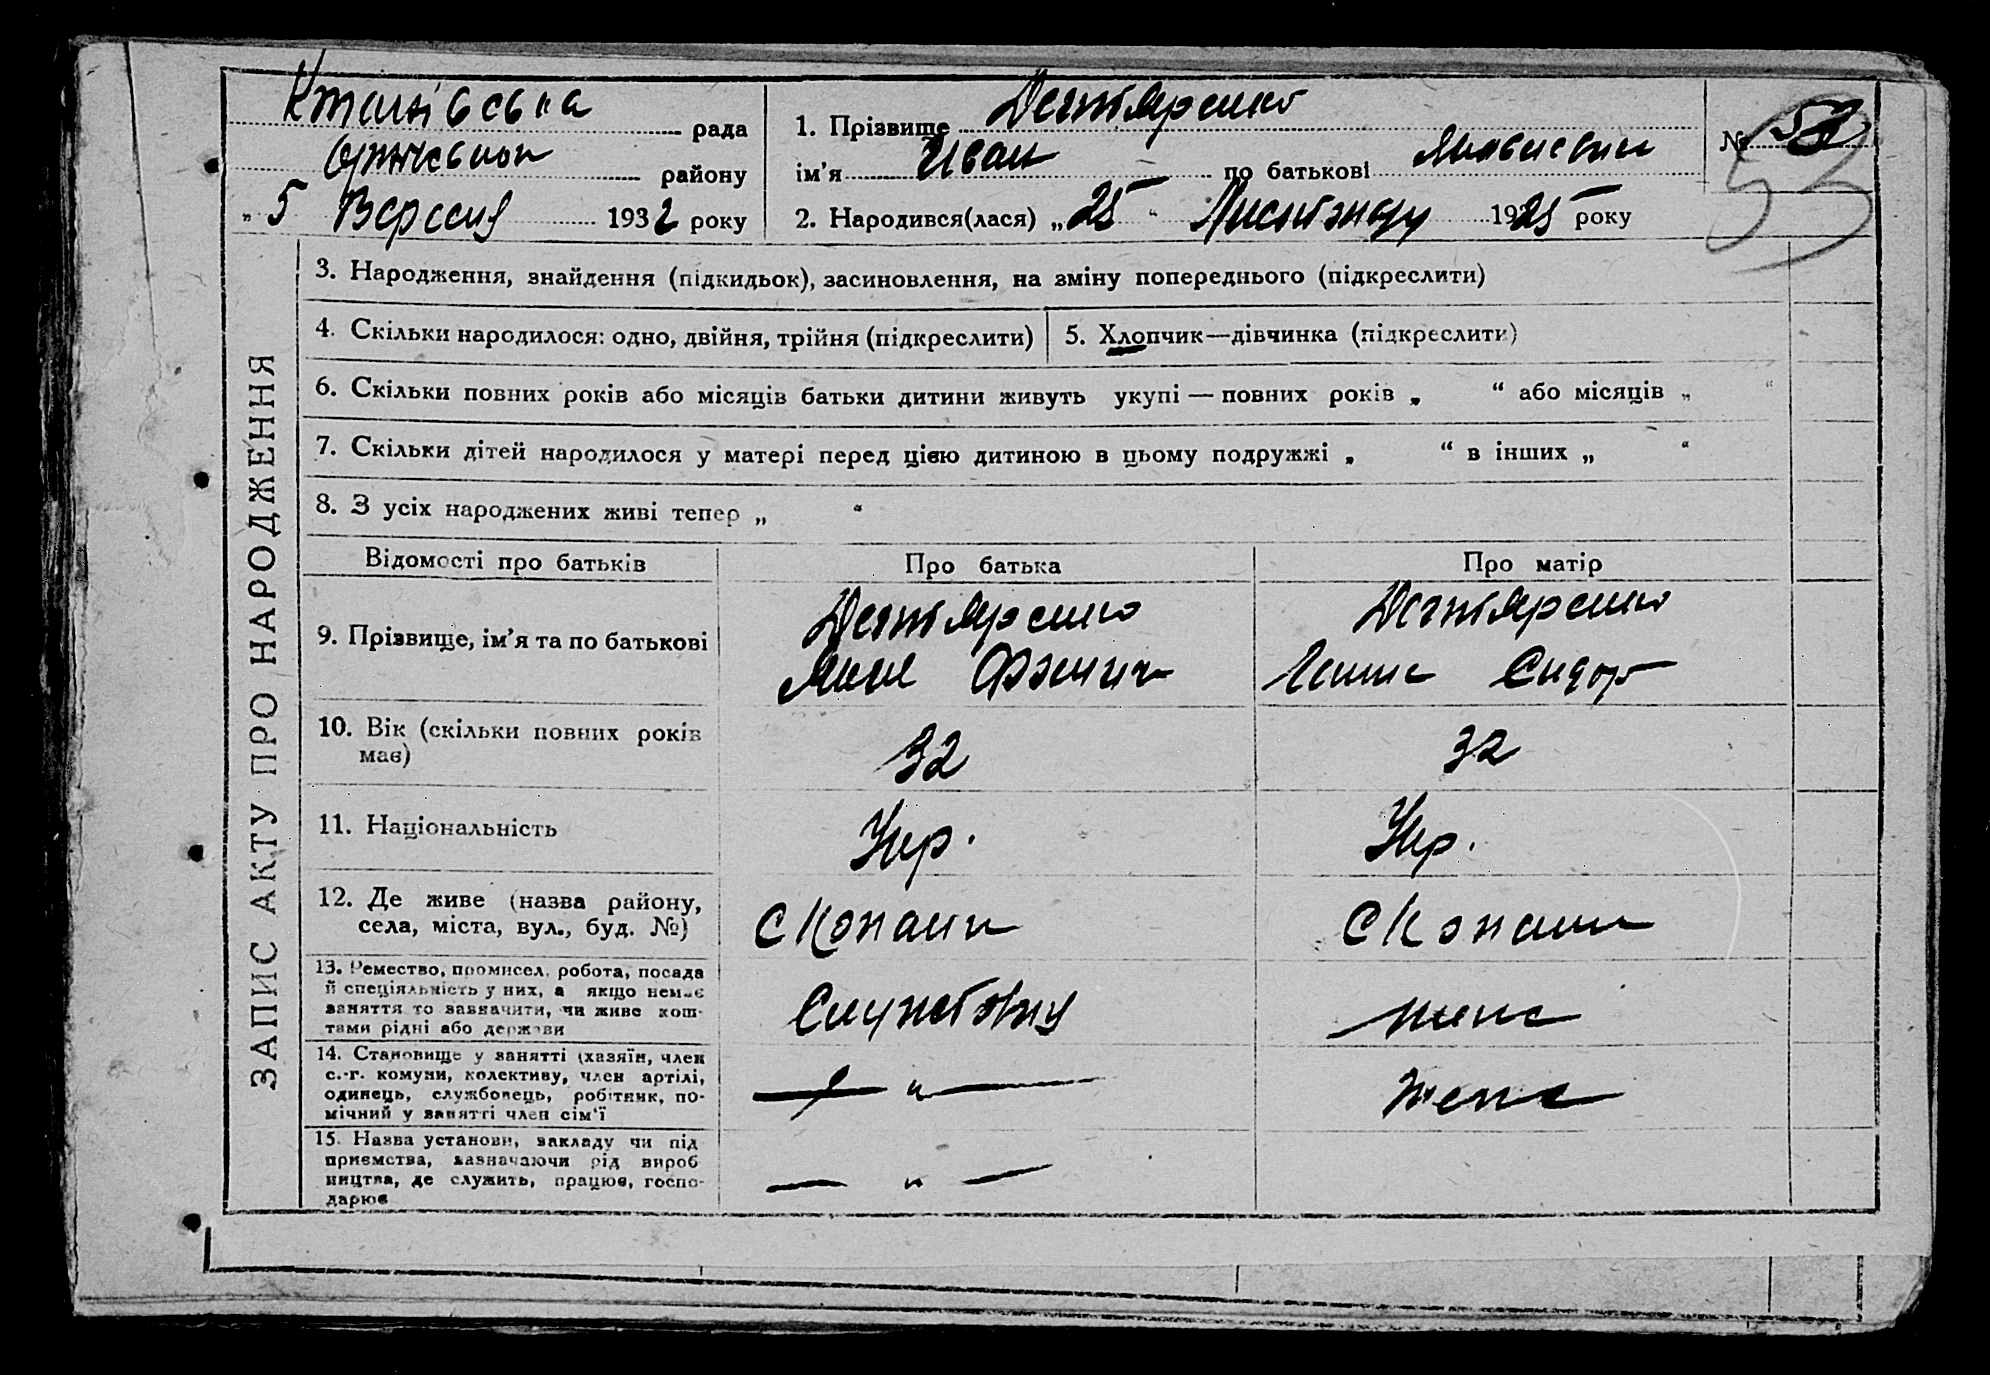 рада
1. Прізвище Дегтяренко
№ 53
району
ім'я Иван по батькові
„ 5 Вересня 1932 року
2. Народився(лася) „ 25 “ Листопаду 1925 року
ЗАПИС АКТУ ПРО НАРОДЖЕННЯ
3. Народження, знайдення (підкидьок), засиновлення, на зміну попереднього (підкреслити)
4. Скільки народилося: одно, двійня, трійня (підкреслити)
5. Хлопчик—дівчинка (підкреслити)
6. Скільки повних років або місяців батьки дитини живуть укупі — повних років „ “ або місяців „ “
7. Скільки дітей народилося у матері перед цією дитиною в цьому подружжі „ “ в інших „ “
8. З усіх народжених живі тепер „ “
Відомості про батьків
Про батька
Про матір
9. Прізвище, ім'я та по батькові
Дегтяренко
Дегтяренко
Сидор
10. Вік (скільки повних років
має)
32
32
11. Національність
Укр.
Укр.
12. Де живе (назва району,
села, міста, вул., буд. №)
С Копани
С Копани
13. Ремество, промисел, робота, посада
й спеціяльність у них, а якщо немає
заняття то зазначити, чи живе кош-
тами рідні або держави
жена
14. Становище у занятті (хазяїн, член
с.-г. комуни, колективу, член артілі,
одинець, службовець, робітник, по-
мічний у занятті член сім'ї
— „ —
жена
15. Назва установи, закладу чи під
приємства, зазначаючи рід вироб
ництва, де служить, працює, госпо-
дарює
— „ —